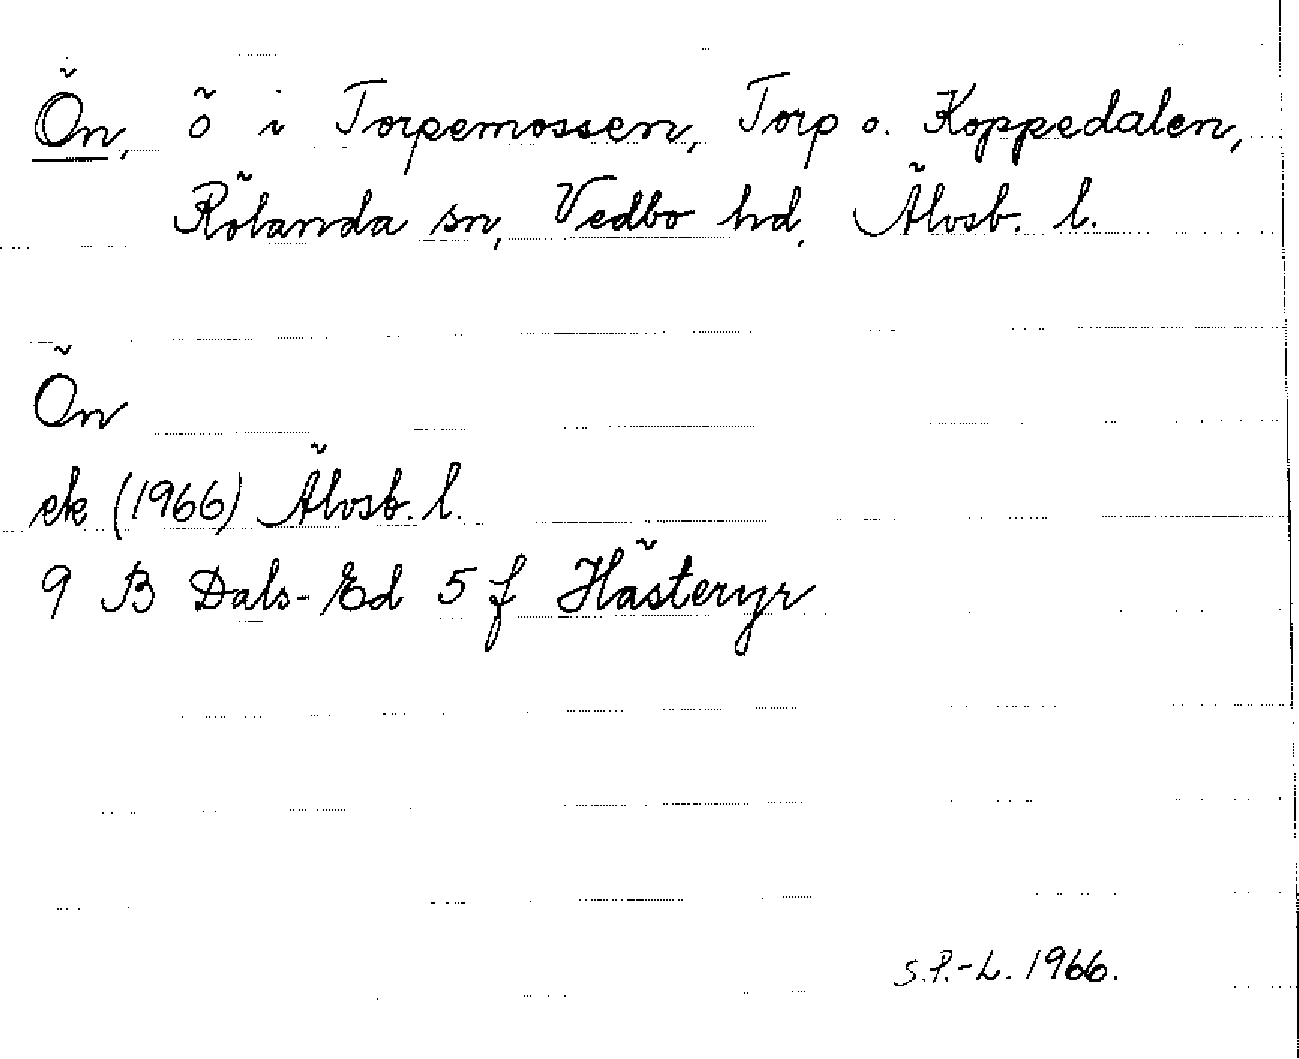 Ön, ö i Torpemossen, Torp o. Koppedalen,
Rölanda sn, Vedbo hd, Älvsb. l.
Ön
ek (1966) Älvsb. l.
9 B Dals-Ed 5 f Hästeryr
S.P.-L. 1966.